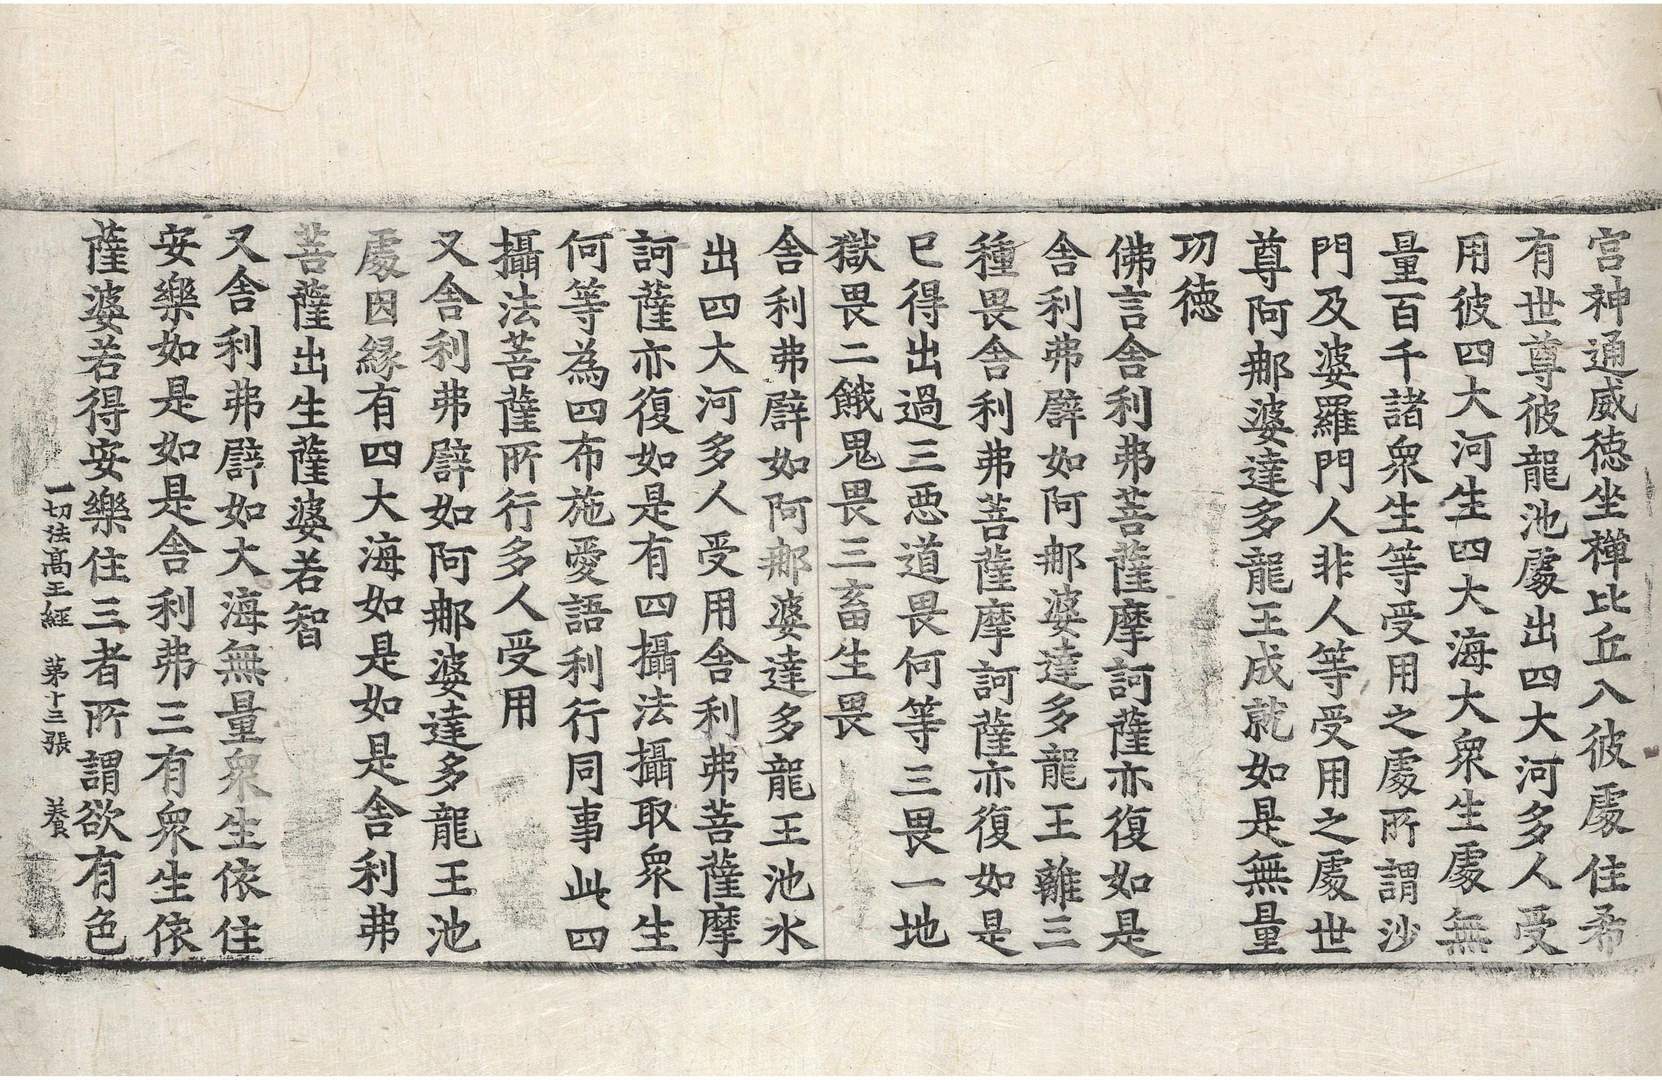 宮神通威徳坐禪比丘入彼處住希
有世尊彼龍池處出四大河多人受
用彼四大河生四大海大衆生處無
量百千諸衆生等受用之處所謂沙
門及婆羅門人非人等受用之處世
尊阿郍婆達多龍王成就如是無量
功徳
佛言舍利弗菩薩摩訶薩亦復如是
舍利弗譬如阿郍婆達多龍王離三
種畏舍利弗菩薩摩訶薩亦復如是
已得出過三惡道畏何等三畏一地
獄畏二餓鬼畏三畜生畏
舍利弗譬如阿郍婆達多龍王池水
出四大河多人受用舍利弗菩薩摩
訶薩亦復如是有四攝法攝取衆生
何等為四布施愛語利行同事此四
攝法菩薩所行多人受用
又舍利弗譬如阿郍婆達多龍王池
處因縁有四大海如是如是舍利弗
菩薩出生薩婆若智
又舍利弗譬如大海無量衆生依住
安樂如是如是舍利弗三有衆生依
薩婆若得安樂住三者所謂欲有色
一切法高王經 第十三張 養